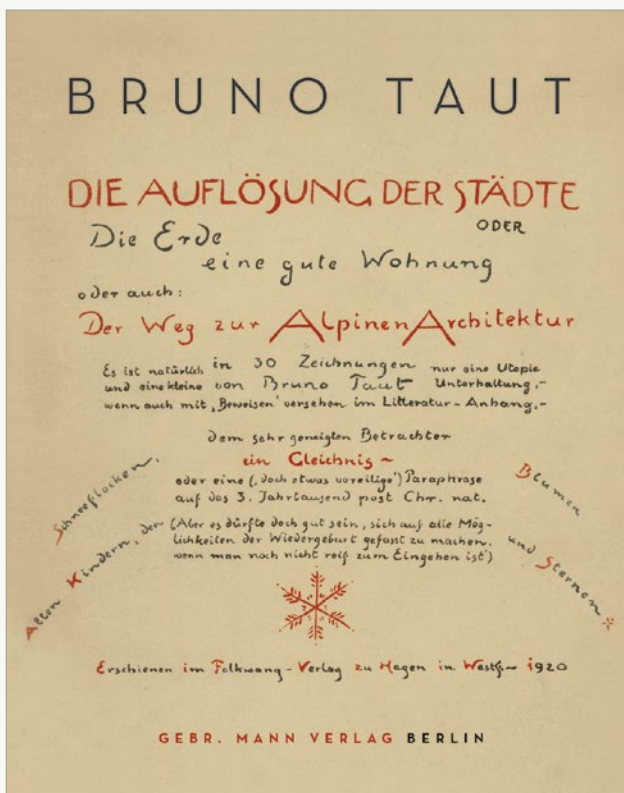 BRUNO TAUT
DIE AUFLÖSUNG DER STÄDTE
ODER
Die Erde
eine gute Wohnung
oder auch:
Der Weg zur Alpinen Architektur
Es ist natürlich in 30 Zeichnungen nur eine Utopie
und eine kleine von Bruno Taut Unterhaltung,-
wenn auch mit „Beweisen" versehen im Litteratur-Anhang,-
dem sehr geneigten Betrachter
ein Gleichnis ~
oder eine („doch etwas voreilige") Paraphrase
auf das 3. Jahrtausend post Chr. nat.
(Aber es dürfte doch gut sein, sich auf alle Mög-
lichkeiten der Wiedergeburt gefasst zu machen,
wenn man noch nicht reif zum Eingehen ist")
Allen Kindern, der
Schneeflocken,
Blumen
und Sternen
Erschienen im Folkwang-Verlag zu Hagen in Westf. ~ 1920
GEBR. MANN VERLAG BERLIN